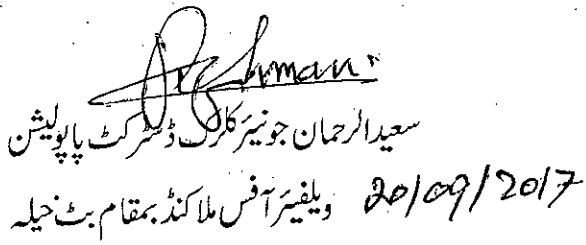 Rehman
سعیدالرحمان جونیئر کلرک ڈسٹرکٹ پاپولیشن
ویلفیئر آفس ملاکنڈ بمقام بٹ خیلہ 20/09/2017